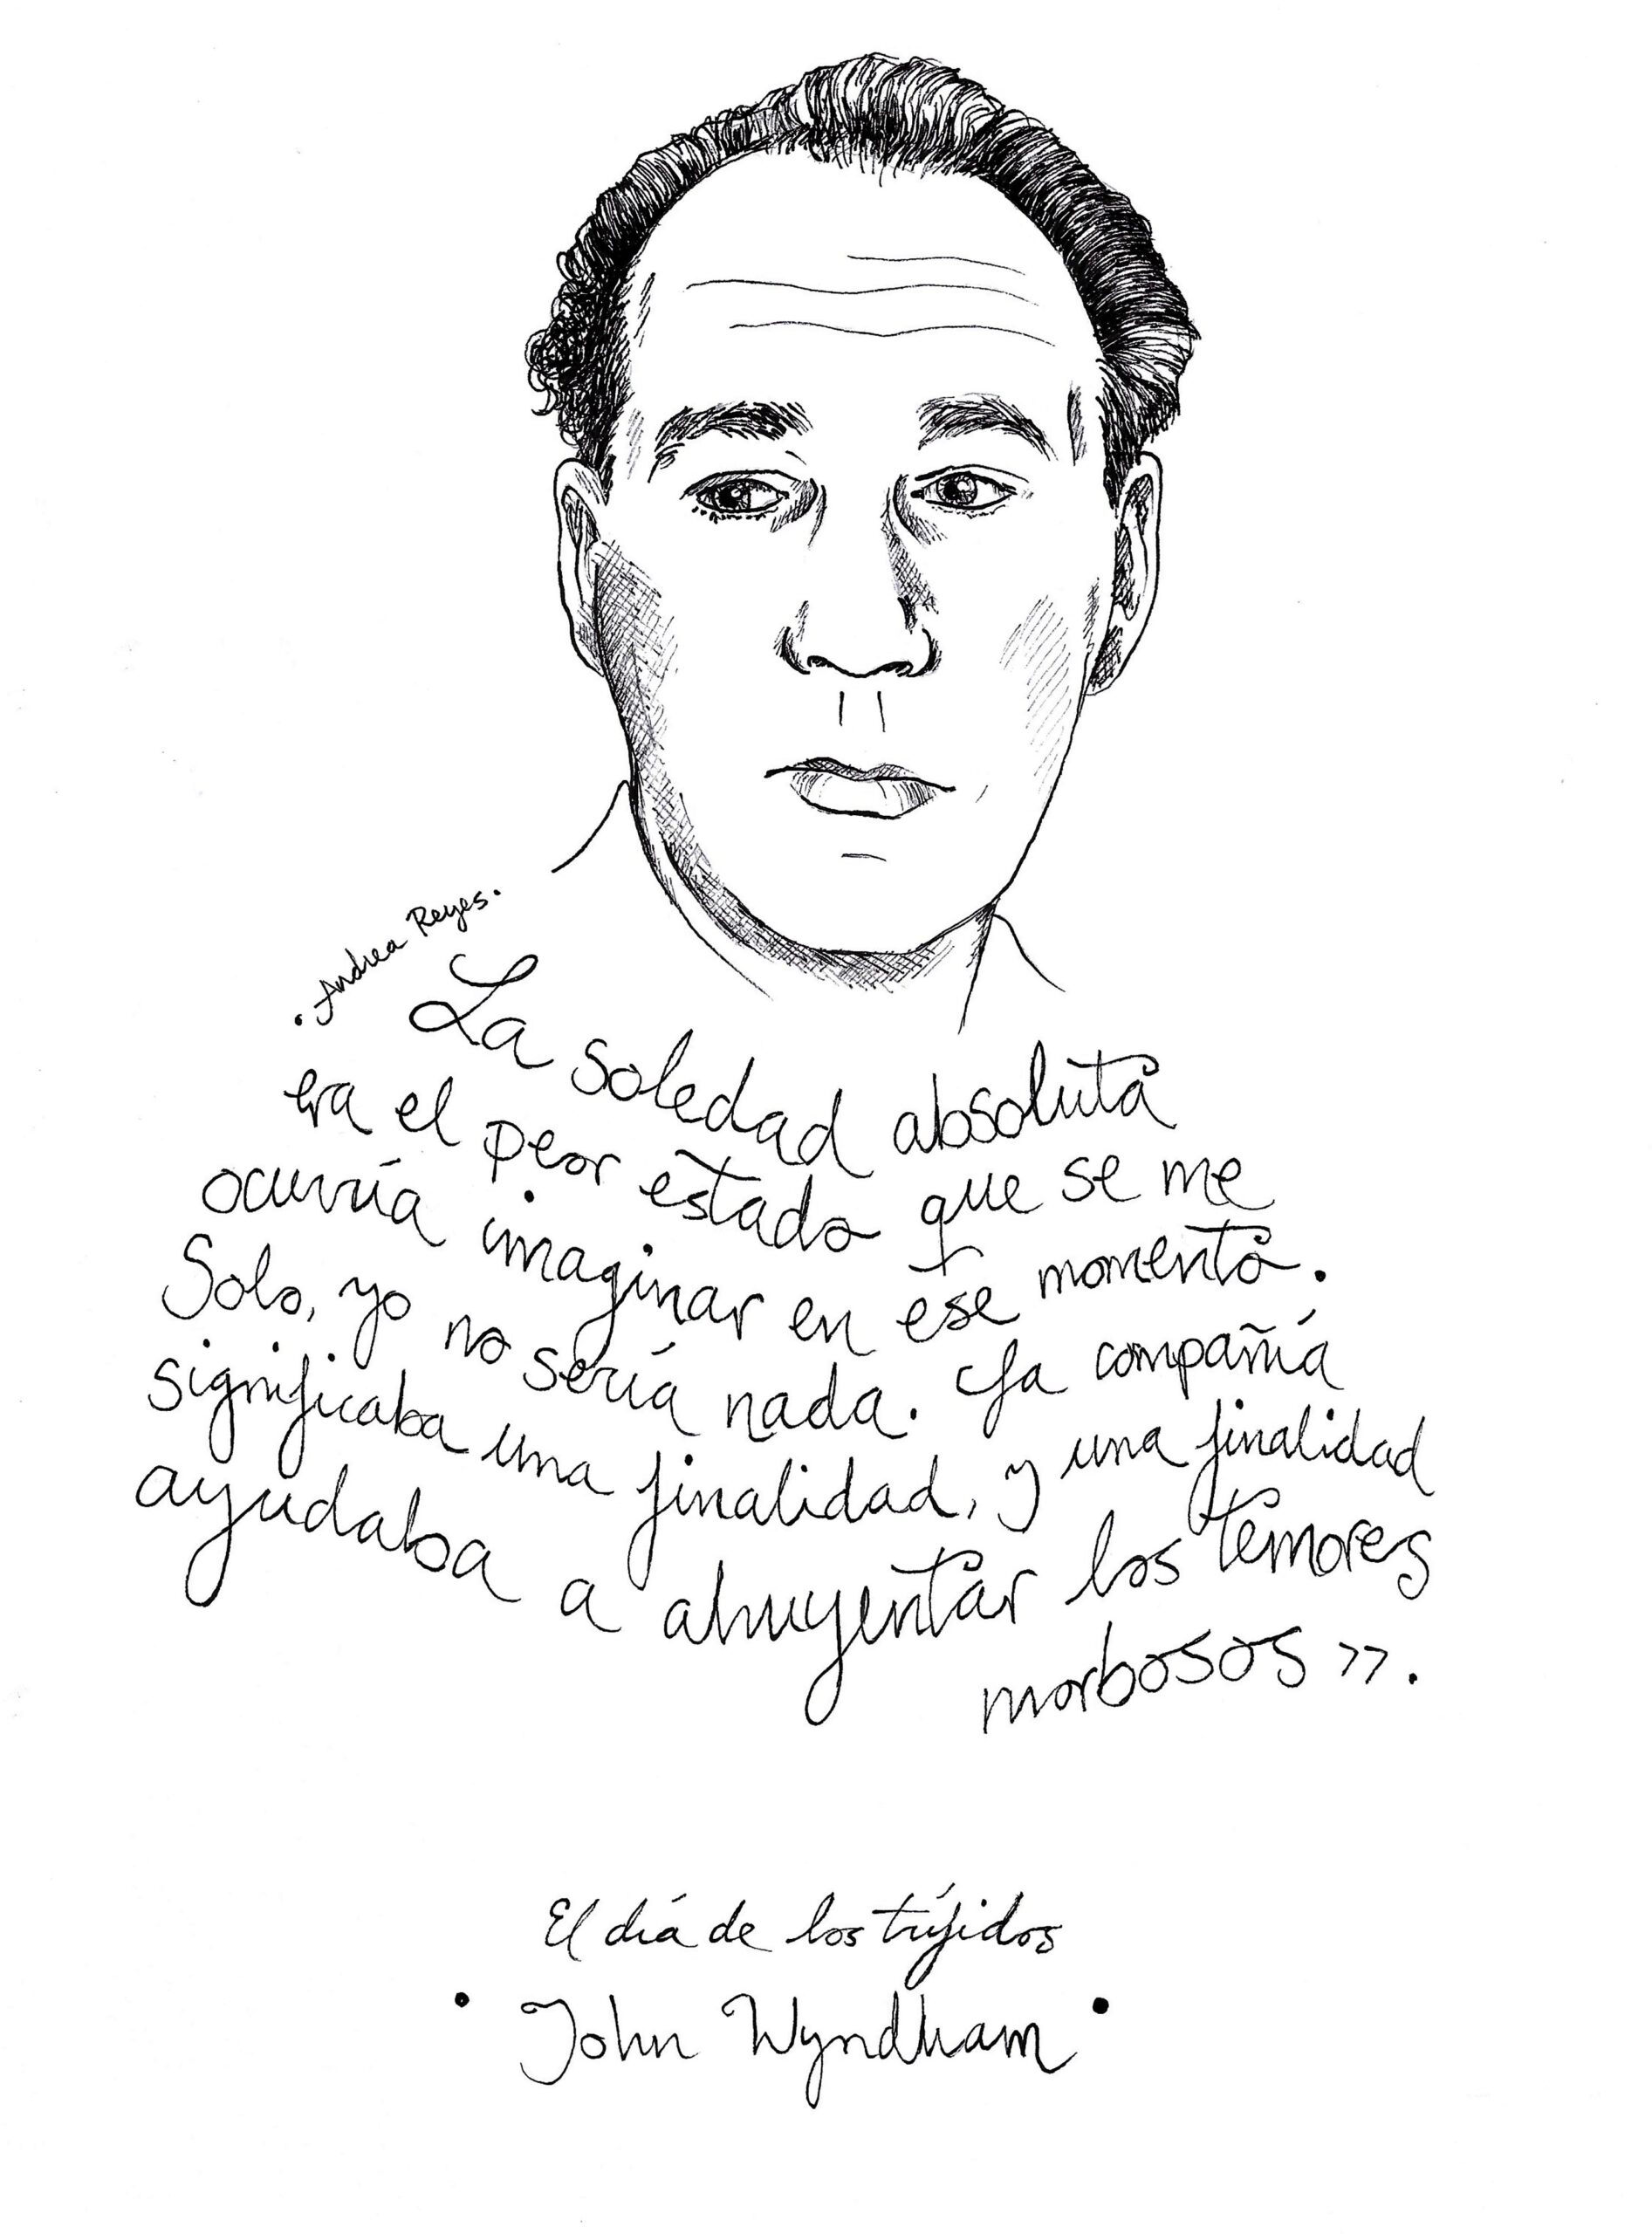 . Andrea Reyes.
La soledad absoluta
era el peor estado que se me
ocurría imaginar en ese momento.
Solo, yo no sería nada. La compañía
significaba una finalidad, y una finalidad
ayudaba a ahuyentar los temores
morbosos >>.
El día de los trífidos
• John Wyndham •